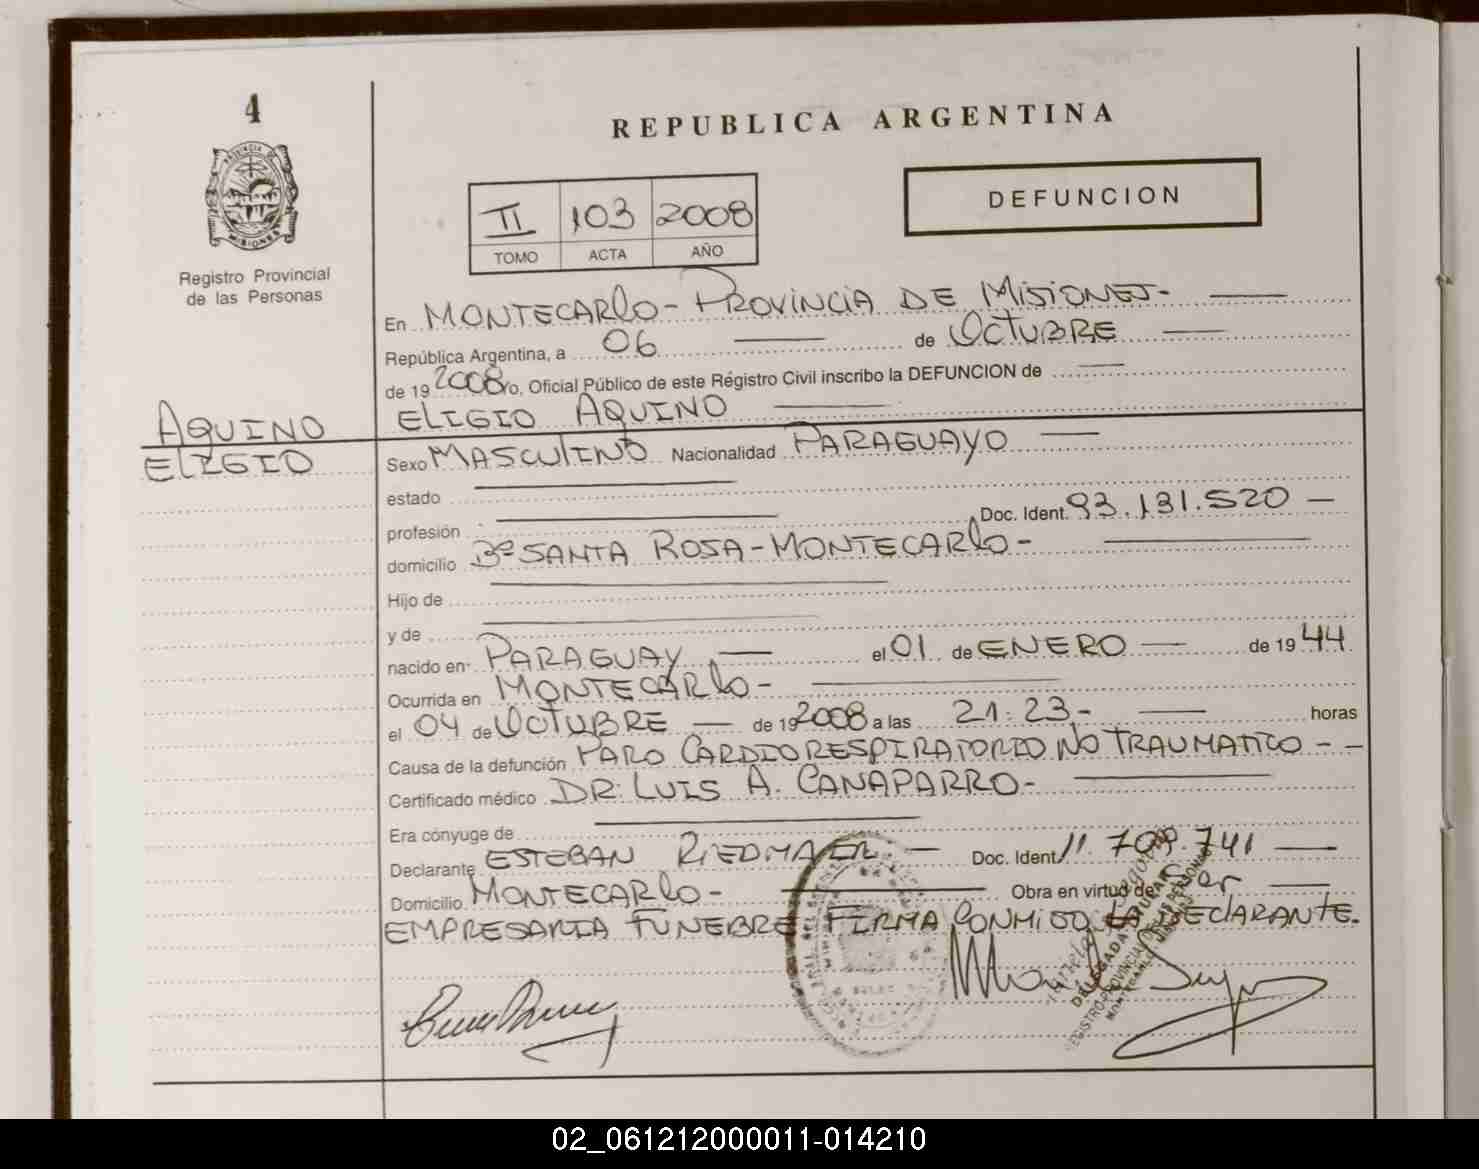 4
REPUBLICA ARGENTINA
PROVINCIA DE
MISIONES
Registro Provincial
de las Personas
II 103 2008
TOMO ACTA AÑO
DEFUNCION
En MONTECARLO - PROVINCIA DE MISIONES -
República Argentina, a 06 de OCTUBRE
de 19 2008 yo, Oficial Público de este Registro Civil inscribo la DEFUNCION de
ELIGIO AQUINO
AQUINO
ELIGIO
Sexo MASCULINO Nacionalidad PARAGUAYO
estado
profesión Doc. Ident. 93.131.520 -
domicilio Bº SANTA ROSA - MONTECARLO -
Hijo de
y de
nacido en PARAGUAY el 01 de ENERO de 19 44
Ocurrida en MONTECARLO -
el 04 de OCTUBRE de 19 2008 a las 21:23 - horas
Causa de la defunción PARO CARDIORESPIRATORIO NO TRAUMATICO - -
Certificado médico DR. LUIS A. CANAPARRO -
Era cónyuge de
Declarante ESTEBAN RIEDMAIER Doc. Ident 11.709.741
Domicilio MONTECARLO - Obra en virtud de Ser
EMPRESARIA FUNEBRE FIRMA CONMIGO DECLARANTE.
DELEGADA TITULAR
REGISTRO PROVINCIAL DE LAS PERSONAS
MONTECARLO MISIONES
02_061212000011-014210